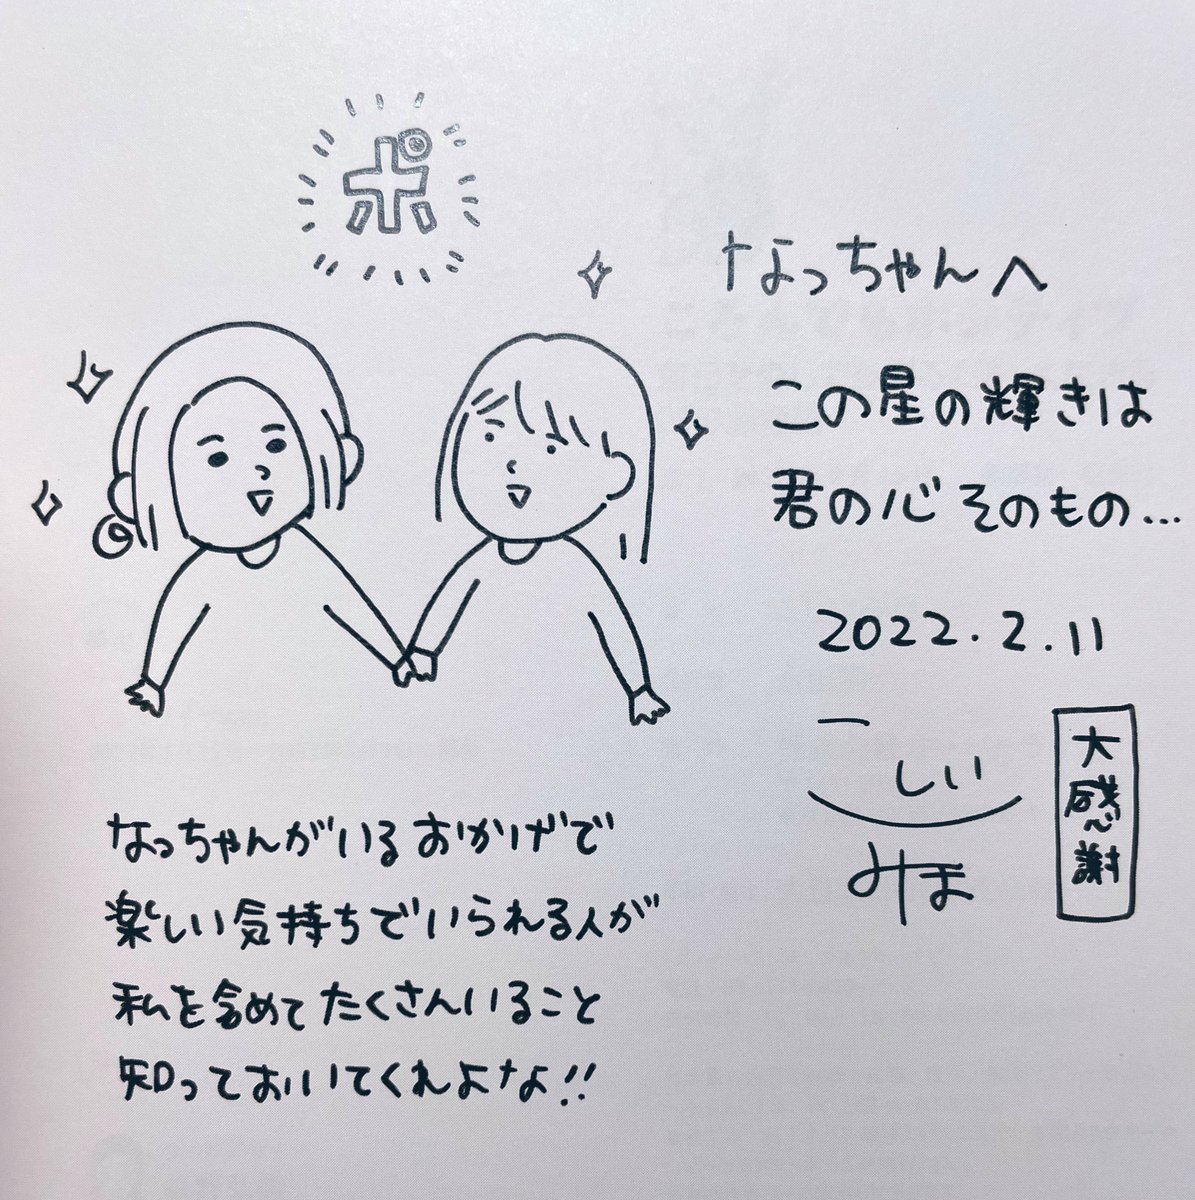 ポ
なっちゃんへ
この星の輝きは
君の心そのもの…
2022.2.11
こしいみま
大感謝
なっちゃんがいるおかげで
楽しい気持ちでいられる人が
私を含めてたくさんいること
知っておいてくれよなよ!!